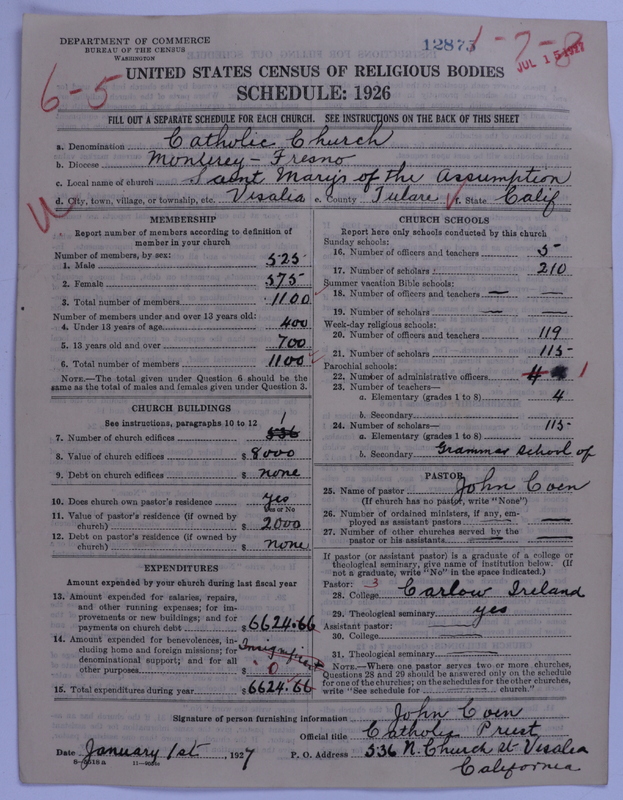 DEPARTMENT OF COMMERCE
BUREAU OF THE CENSUS
WASHINGTON
12875
1-7-8
JUL 15 1927
6-5
UNITED STATES CENSUS OF RELIGIOUS BODIES
SCHEDULE: 1926
FILL OUT A SEPARATE SCHEDULE FOR EACH CHURCH. SEE INSTRUCTIONS ON THE BACK OF THIS SHEET
a. Denomination Catholic Church
b. Diocese Monterey - Fresno
c. Local name of church Saint Mary's of the Assumption
d. City, town, village, or township, etc. Visalia e. County Tulare f. State Calif
MEMBERSHIP
Report number of members according to definition of
member in your church
Number of members, by sex:
1. Male 525
2. Female 575
3. Total number of members 1100
Number of members under and over 13 years old:
4. Under 13 years of age 400
5. 13 years old and over 700
6. Total number of members 1100
NOTE.—The total given under Question 6 should be the
same as the total of males and females given under Question 3.
CHURCH BUILDINGS
See instructions, paragraphs 10 to 12
7. Number of church edifices 536 1
8. Value of church edifices $ 8000
9. Debt on church edifices $ none
10. Does church own pastor's residence yes
Yes or No
11. Value of pastor's residence (if owned by
church) $ 2000
12. Debt on pastor's residence (if owned by
church) $ none
EXPENDITURES
Amount expended by your church during last fiscal year
13. Amount expended for salaries, repairs,
and other running expenses; for im-
provements or new buildings; and for
payments on church debt $ 6624.66
14. Amount expended for benevolences, in-
cluding home and foreign missions; for
denominational support; and for all
other purposes $ 0
15. Total expenditures during year $ 6624.66
CHURCH SCHOOLS
Report here only schools conducted by this church
Sunday schools:
16. Number of officers and teachers 5
17. Number of scholars 210
Summer vacation Bible schools:
18. Number of officers and teachers — —
19. Number of scholars — —
Week-day religious schools:
20. Number of officers and teachers 119
21. Number of scholars 115
Parochial schools:
22. Number of administrative officers 4 1
23. Number of teachers—
a. Elementary (grades 1 to 8) 4
b. Secondary
24. Number of scholars— 115
a. Elementary (grades 1 to 8)
b. Secondary Grammar School of
PASTOR
25. Name of pastor John Coen
(If church has no pastor, write "None")
26. Number of ordained ministers, if any, em-
ployed as assistant pastors — —
27. Number of other churches served by the
pastor or his assistants — —
If pastor (or assistant pastor) is a graduate of a college or
theological seminary, give name of institution below. (If
not a graduate, write "No" in the space indicated.)
Pastor: 3
28. College Carlow Ireland
29. Theological seminary yes
Assistant pastor:
30. College —
31. Theological seminary —
NOTE.—Where one pastor serves two or more churches,
Questions 28 and 29 should be answered only on the schedule
for one of the churches; on the schedules for the other churches,
write "See schedule for church."
Signature of person furnishing information John Coen
Official title Catholic Priest
Date January 1st, 1927 P. O. Address 536 N. Church st Visalia
California